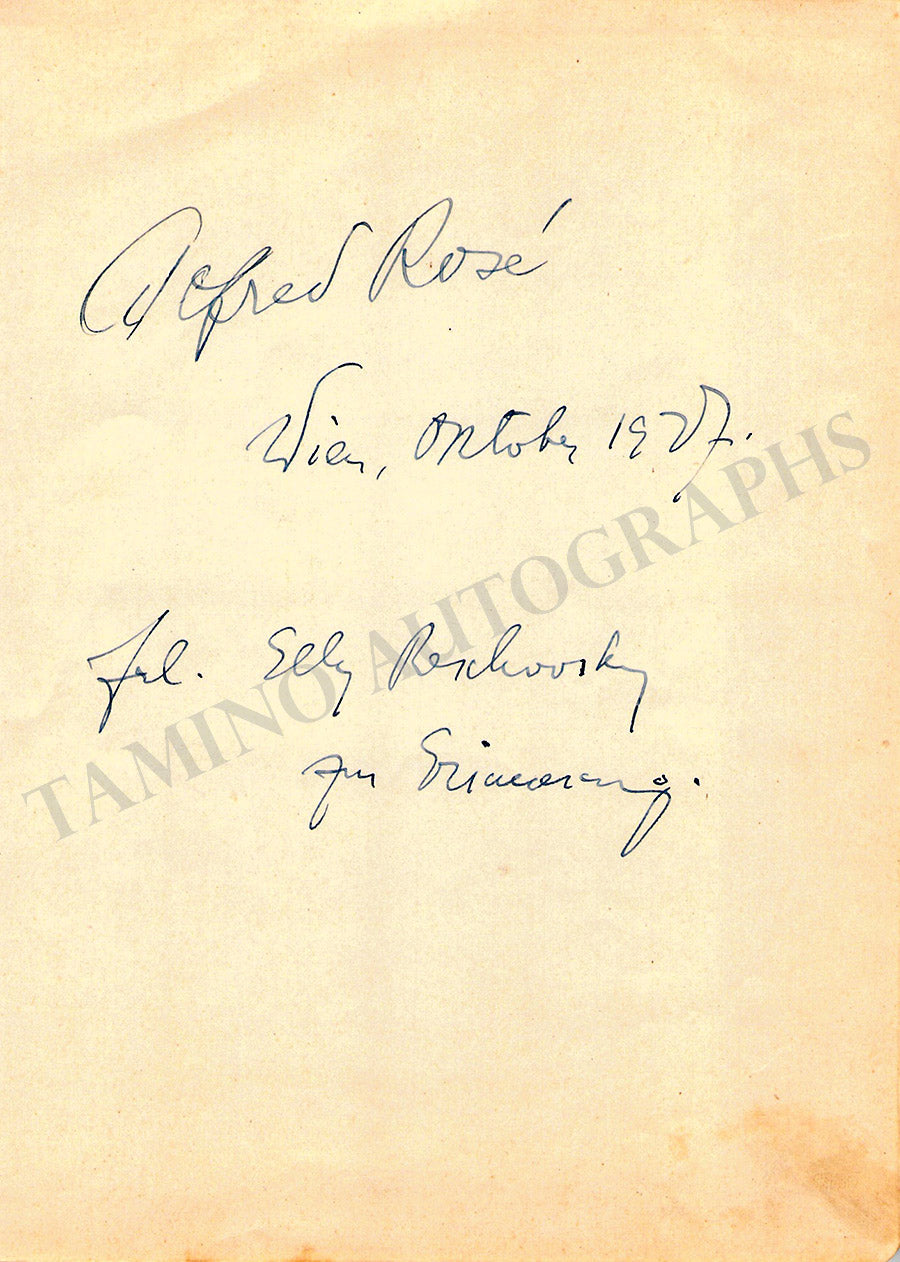 Alfred Rosé
Wien, Oktober 1927.
Frl. Elly Reschovsky
zur Erinnerung.
TAMINO AUTOGRAPHS